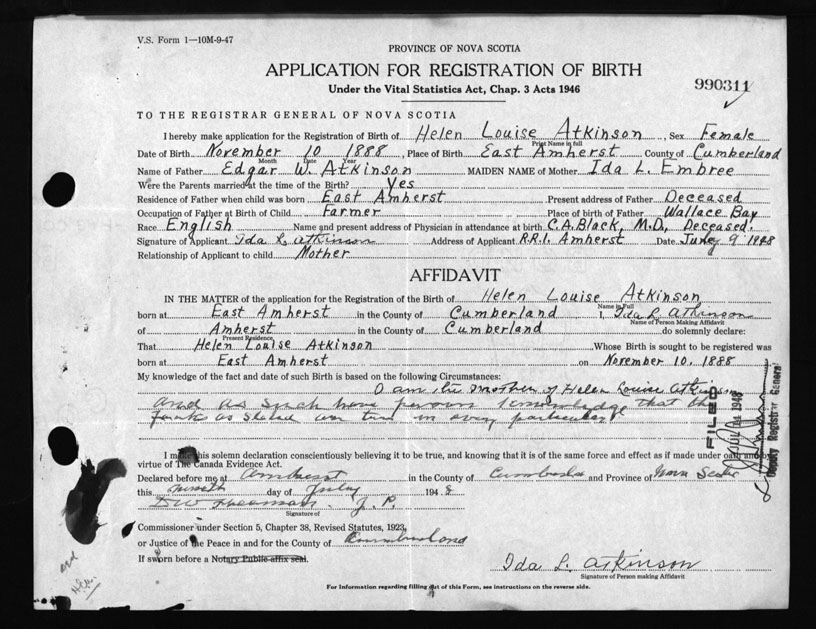 V.S. Form 1—10M-9-47
PROVINCE OF NOVA SCOTIA
APPLICATION FOR REGISTRATION OF BIRTH
Under the Vital Statistics Act, Chap. 3 Acts 1946
990311
TO THE REGISTRAR GENERAL OF NOVA SCOTIA
I hereby make application for the Registration of Birth of Helen Louise Atkinson, Sex Female
Print Name in full
Date of Birth November 10 1888, Place of Birth East Amherst County of Cumberland
Month Date Year
Name of Father Edgar W. Atkinson MAIDEN NAME of Mother Ida L. Embree
Were the Parents married at the time of the Birth? Yes
Residence of Father when child was born East Amherst Present address of Father Deceased
Occupation of Father at Birth of Child Farmer Place of birth of Father Wallace Bay
Race English Name and present address of Physician in attendance at birth C.A. Black, M.D., Deceased.
Signature of Applicant Ida L. Atkinson Address of Applicant R.R.1. Amherst Date July 9 1948
Relationship of Applicant to child Mother
AFFIDAVIT
IN THE MATTER of the application for the Registration of the Birth of Helen Louise Atkinson
Name in Full
born at East Amherst in the County of Cumberland I, Ida L. Atkinson
Name of Person Making Affidavit
of Amherst in the County of Cumberland do solemnly declare:
Present Residence
That Helen Louise Atkinson Whose Birth is sought to be registered was
born at East Amherst on November 10, 1888
My knowledge of the fact and date of such Birth is based on the following Circumstances:
I am the mother of Helen Louise Atkinson
and as such have personal knowledge that the
facts as stated are true in every particular
FILED
JUL 14 1948
Deputy Registrar General
I make this solemn declaration conscientiously believing it to be true, and knowing that it is of the same force and effect as if made under oath and by
virtue of The Canada Evidence Act.
Declared before me at Amherst in the County of Cumberland and Province of Nova Scotia
this day of July 1948
J. P.
Signature of
Commissioner under Section 5, Chapter 38, Revised Statutes, 1923,
or Justice of the Peace in and for the County of Cumberland
If sworn before a Notary Public affix seal.
Ida L. Atkinson
Signature of Person making Affidavit
For Information regarding filling out of this Form, see instructions on the reverse side.